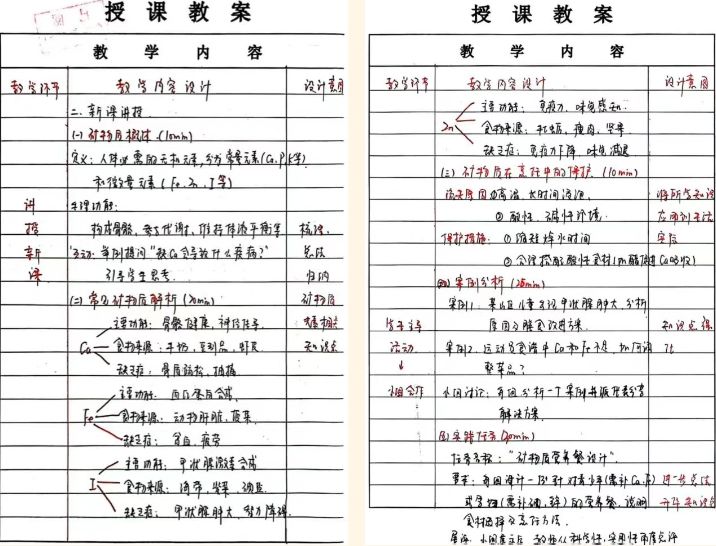 授课教案
教学内容
教学环节 教学内容设计 设计意图
二、新课讲授
(一) 矿物质概述 (10min)
定义: 人体必需的无机元素, 分为常量元素 (Ca、P、K等)
和微量元素 (Fe、Zn、I等)
讲授新课
生理功能:
构成骨骼, 参与代谢, 维持体液平衡等
梳理、总结归纳矿物质相关知识点
互动: 举例提问 "缺Ca会导致什么疾病?"
引导学生思考.
(二) 常见矿物质解析 (20min)
Ca
主要功能: 骨骼健康, 神经传导
食物来源: 牛奶, 豆制品, 虾皮
缺乏症: 骨质疏松、抽搐
Fe
主要功能: 血红蛋白合成,
食物来源: 动物肝脏, 菠菜,
缺乏症: 贫血, 疲劳
I
主要功能: 甲状腺激素合成
食物来源: 海带, 紫菜, 碘盐
缺乏症: 甲状腺肿大, 智力障碍
授课教案
教学内容
教学环节 教学内容设计 设计意图
Zn
主要功能: 免疫力, 味觉感知.
食物来源: 牡蛎, 瘦肉, 坚果
缺乏症: 免疫力下降, 味觉减退
(三) 矿物质在烹饪中的保护 (10min)
流失原因 ① 高温, 长时间浸泡,
② 酸性、碱性环境.
将所学知识应用到生活实际
保护措施: ① 缩短焯水时间
② 合理搭配酸性食材 (如醋促进Ca吸收)
(四) 案例分析 (20min)
案例1: 某地区儿童出现甲状腺肿大, 分析
原因及膳食改进方案.
学生主导活动
↓
小组合作
知识点强化
案例2. 运动员食谱中Ca和Fe不足, 如何调
整菜品?
小组讨论: 每组分析一个案例并派代表分享
解决方案.
(五) 实践任务 (20min)
任务名称: "矿物质营养餐设计".
要求: 每组设计一份针对青少年 (需补Ca、Fe)
或孕妇 (需补碘, 锌) 的营养餐, 说明
食物选择及烹饪方法.
进一步总结
知识
展示: 小组展示, 科学性, 实用性角度点评